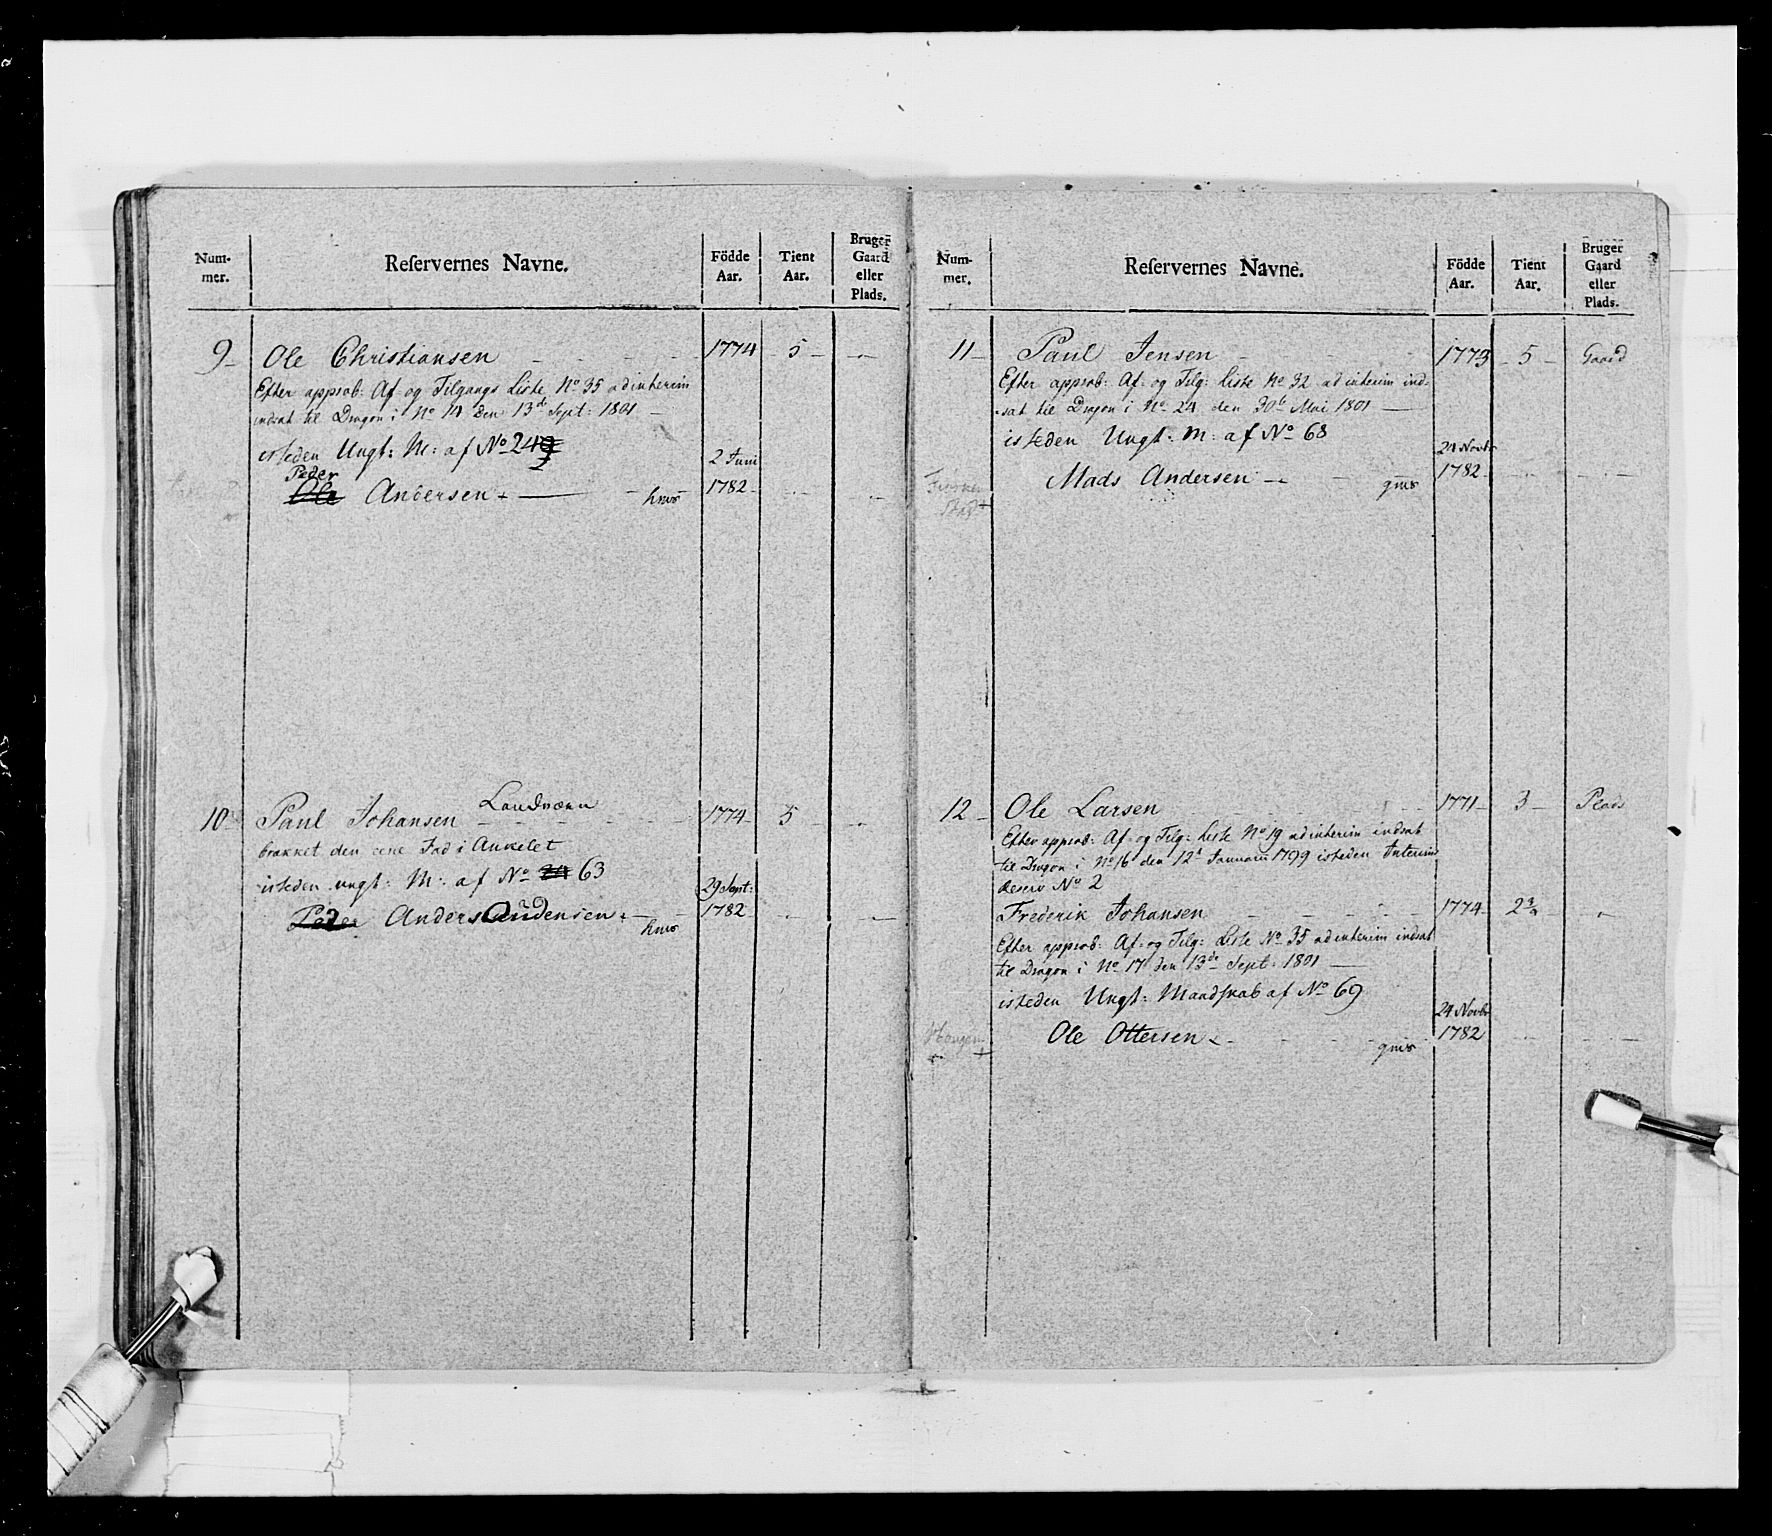 Num-
mer.
Reservernes Navne.
Födde
Aar.
Tient
Aar.
Bruger
Gaard
eller
Plads.
9 Ole Christiansen 1774 5
Efter approb: Af- og Tilgangs Liste No 35 ad interim
indsat til Dragon i No 14 den 13de Sept: 1801
isteden Ungt: M: af No 24
Peder
Ole Andersen hms 2 Juni 1782
10 Paul Johansen Landværn 1774 5
brækket den ene Fod i Ankelet
isteden ungt: M: af No 24 63
Peder Anders Andensen hms 29 Sept: 1782
Num-
mer.
Reservernes Navne.
Födde
Aar.
Tient
Aar.
Bruger
Gaard
eller
Plads.
11 Paul Jensen 1773 5 Gaard
Efter approb: Af- og Tilg: Liste No 32 ad interim ind-
sat til Dragon i No 24 den 30te Mai 1801
isteden Ungt: M: af No 68
Mads Andersen gms 24 Novbr 1782
12 Ole Larsen 1771 3 Plads
Efter approb: Af- og Tilg: Liste No 19 ad interim indsat
til Dragon i No 16 den 12t Januarii 1799 isteden Interims
Reserv No 2
Frederik Johansen 1774 2 3/4
Efter approb: Af- og Tilg: Liste No 35 ad interim indsat
til Dragon i No 17 den 13de Sept: 1801
isteden Ungt: Mandskab af No 69
Haugen Ole Ottersen gms 24 Novbr 1782